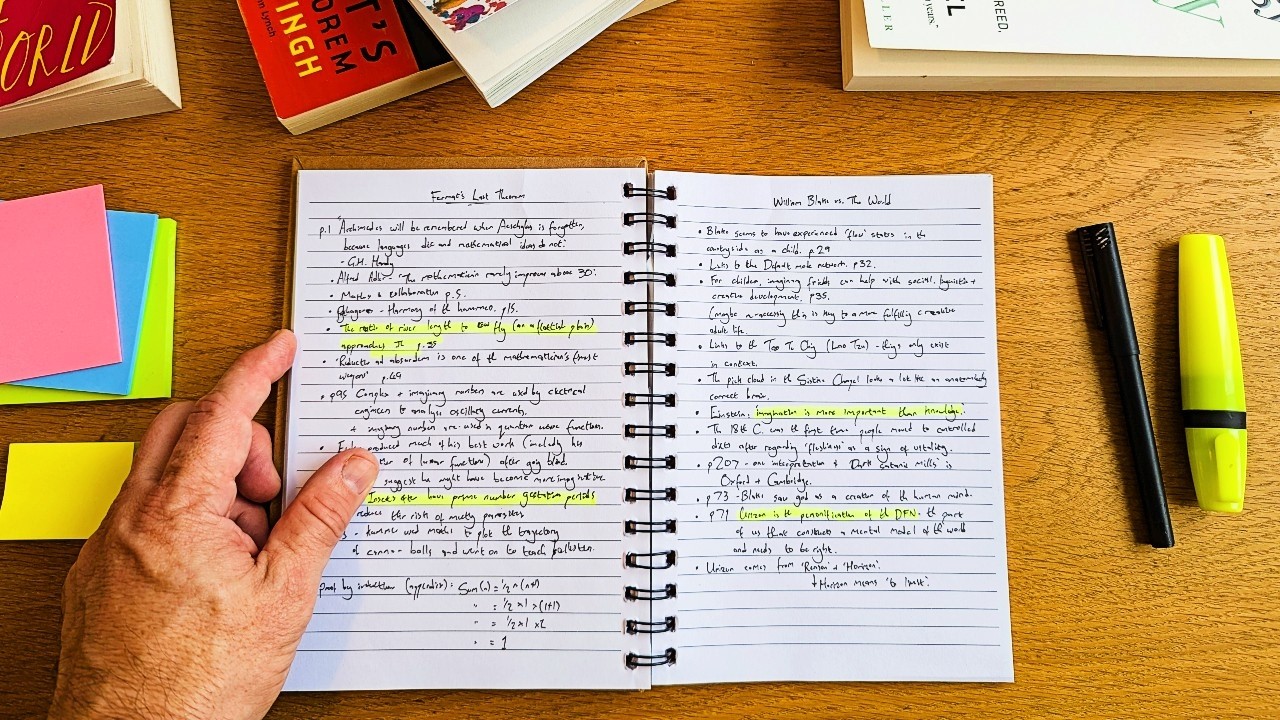 ORLD
T'S
OREM
INGH
hn Lynch
EL
REED,
years.'
LLER
Fermat's Last Theorem
p.1 "Archimedes will be remembered when Aeschylus is forgotten,
because languages die and mathematical ideas do not."
- G.H. Hardy
• Alfred Adler - "The mathematician rarely improves above 30".
• Maths & collaboration p.5.
• Pythagoras - Harmony of the hammers. p15.
• The ratio of river length to crow fly (on a flat plain)
approaches π p.25
• 'Reductio ad absurdum is one of the mathematician's finest
weapons' p.49
• p95 Complex + imaginary numbers are used by electrical
engineers to analyse oscillating currents,
+ imaginary numbers are used in quantum wave function.
• produced much of his best work (including his
of lunar functions) after going blind.
suggest he might have become more imaginative.
Insects often have prime number gestation periods
reduce the risk of meeting parasites
used maths to plot the trajectory
of cannon-balls and went on to teach
Proof by induction (appendix): Sum(n) = ½n(n+1)
" = ½ x 1 x (1+1)
" = ½ x 1 x 2
" = 1
William Blake vs. The World
• Blake seems to have experienced 'flow' states in the
countryside as a child. p.29
• Links to the Default mode network. p32.
• For children, imaginary friends can help with social, linguistic +
creative development. p35.
(maybe accessing this is key to a more fulfilling creative
adult life.
• Links to the Tao Te Ching (Lao Tzu) - things only exist
in context.
• The pink cloud in the Sistine Chapel looks a lot like an anatomically
correct brain.
• Einstein, imagination is more important than knowledge.
• The 18th C. was the first time people moved to controlled
diets after regarding 'plumpness' as a sign of vitality.
• p207 - one interpretation of 'Dark Satanic Mills' is
Oxford + Cambridge.
• p73 - Blake saw god as a creation of the human mind.
• p71 Urizen is the personification of the DMN - the part
of us that constructs a mental model of the world
and needs to be right.
• Urizen comes from 'Reason' + 'Horizon'.
Horizon means 'to limit'.